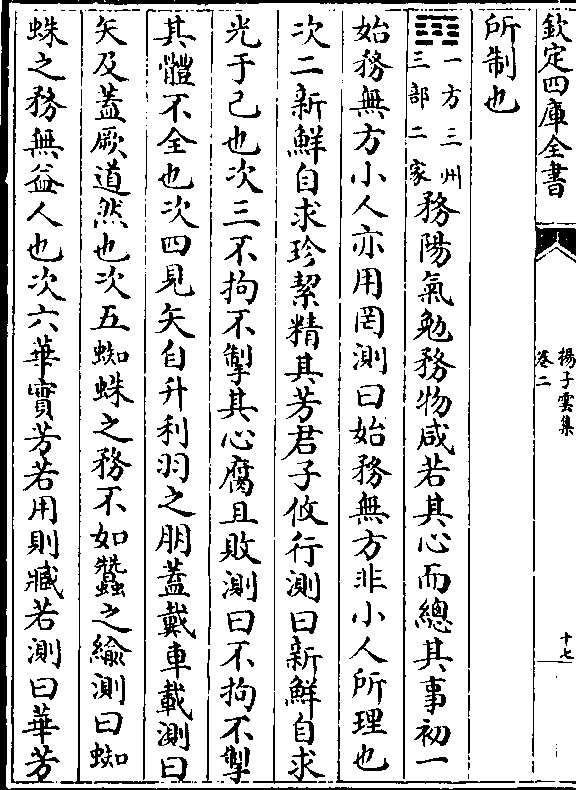 欽定四庫全書
揚子雲集
卷二
十七
所制也
䷲一方三州三部二家務陽氣勉務物咸若其心而總其事初一
始務無方小人亦用罔測曰始務無方非小人所理也
次二新鮮自求珍絜精其芳君子攸行測曰新鮮自求
光于己也次三不拘不掣其心腐且敗測曰不拘不掣
其體不全也次四見矢自升利羽之朋蓋戴車載測曰
矢及蓋厥道然也次五蜘蛛之務不如蠶之緰測曰蜘
蛛之務無益人也次六華實芳若用則臧若測曰華芳